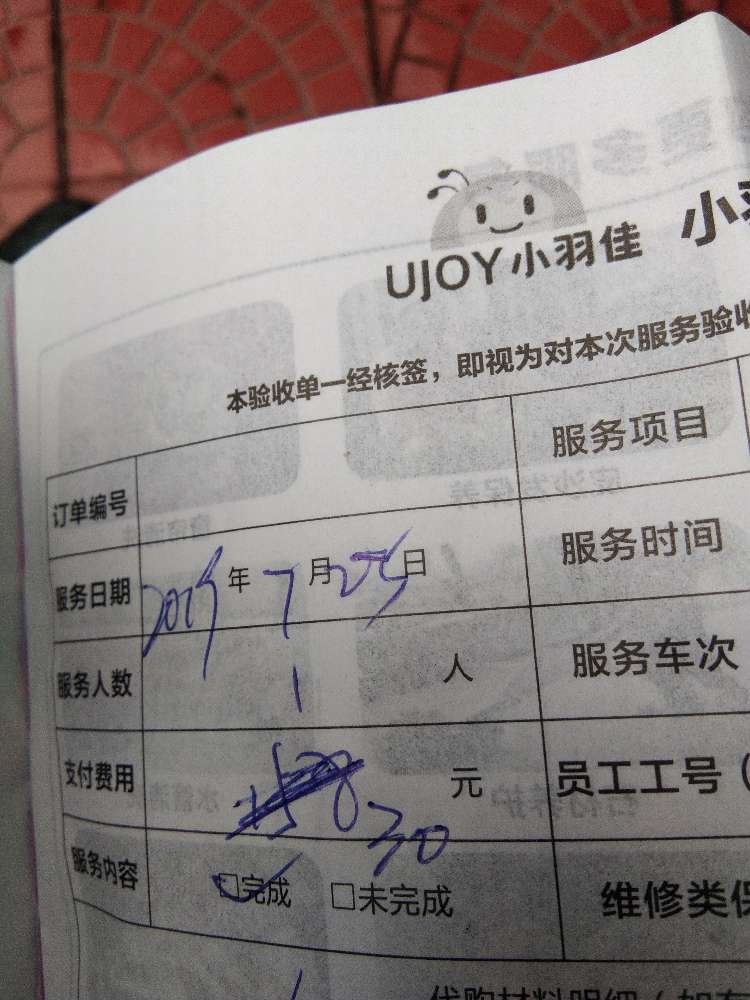 UJOY小羽佳 小羽
本验收单一经核签，即视为对本次服务验收
订单编号 服务项目
服务日期 2019年7月25日 服务时间
服务人数 1人 服务车次
支付费用 30 元 员工工号（
服务内容 ☑完成 □未完成 维修类保
代购材料明细（如有